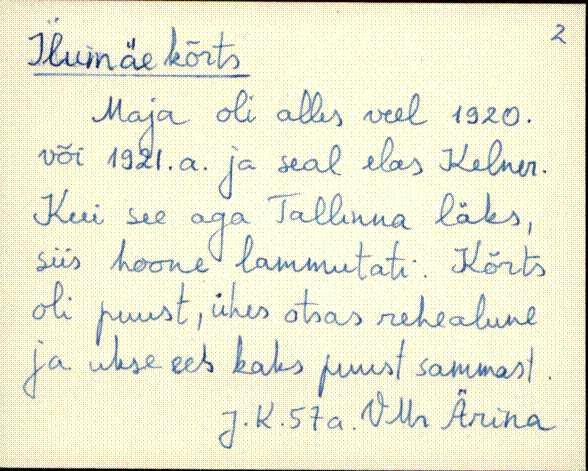 2
Ilumäe kõrts
Maja oli alles veel 1920.
või 1921.a. ja seal elas Kelner.
Kui see aga Tallinna läks,
siis hoone lammutati. Kõrts
oli puust, ühes otsas rehealune
ja ukse ees kaks puust sammast.
J.K. 57a. VMr Ärina